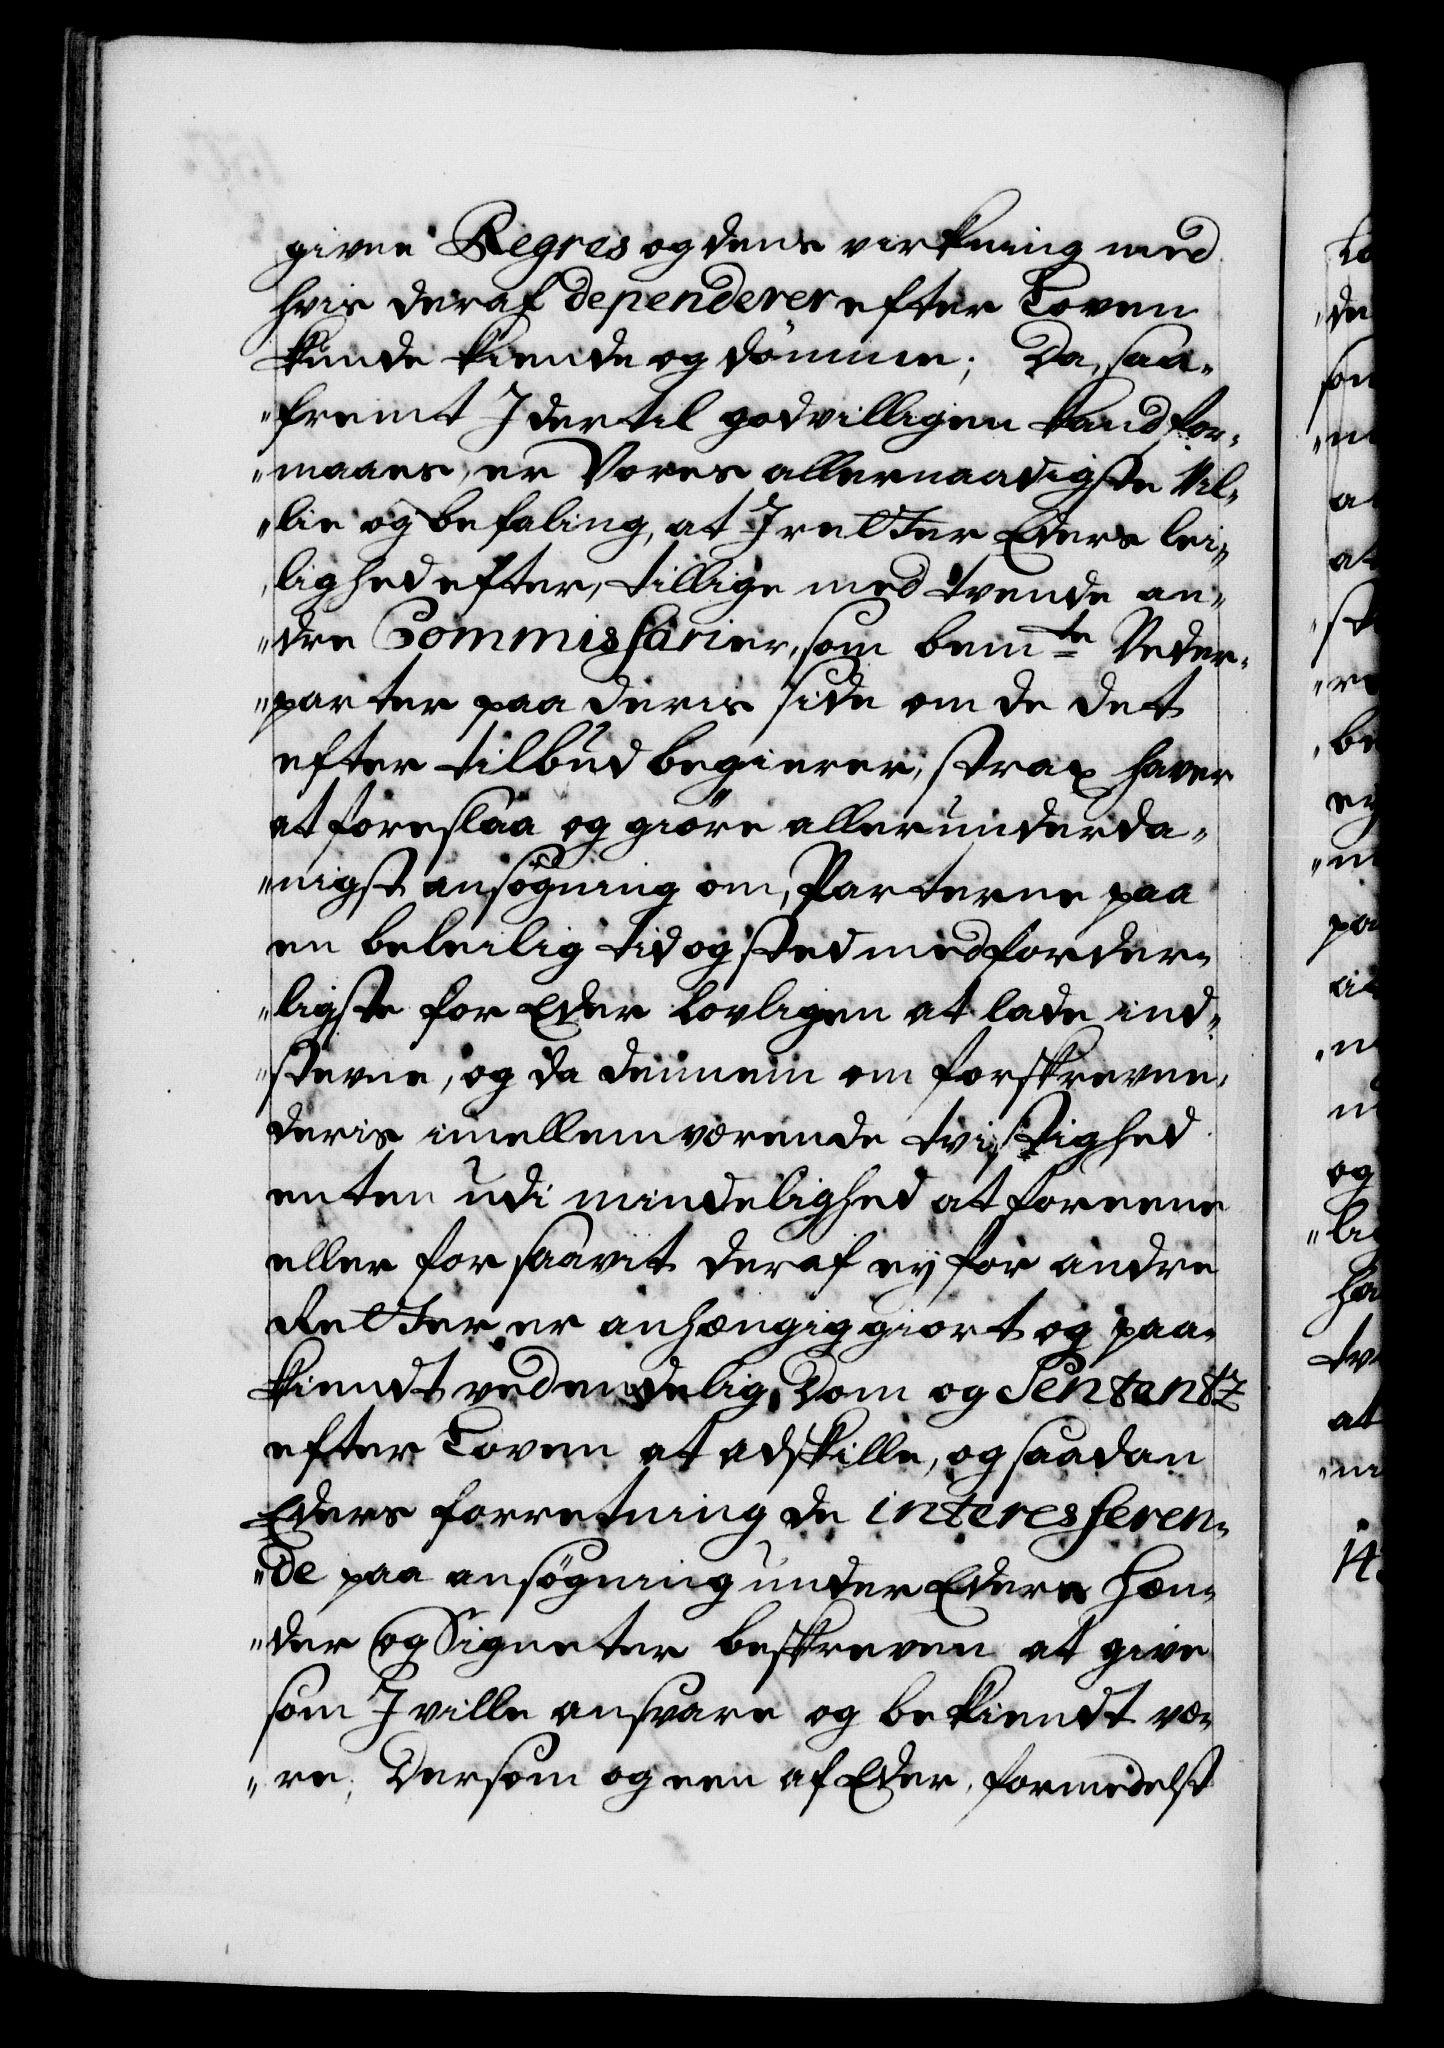 givne Regres og dens virkning med
hvis deraf dependerer efter Loven
kunde kiende og dømme; Da, saa„
„fremt I dertil godvilligen kand for„
„maaes, er Vores allernaadigste Vil„
„lie og befaling, at I retter Eders lei„
„lighed efter, tillige med tvende an„
„dre Commissarier, som bemte Veder„
„parter paa deris side om de det
efter tilbud begierer, strax haver
at foreslaa og giøre allerunderda„
„nigst ansøgning om, Parterne paa
en beleilig tid og sted med forder„
„ligste for Eder Lovligen at lade ind„
„stevne, og da dennem om forskrevne
deris imellemværende tvistighed
enten udi mindelighed at foreene
eller forsaavit deraf ey for andre
Retter er anhængig giort og paa„
kiendt ved endelig Dom og Sententz
efter Loven at adskille, og saadan
Eders forretning de interesseren„
„de paa ansøgning under Eders hæn„
„der og Signeter beskreven at give
som I ville ansvare og bekiendt væ„
„re; Dersom og een af Eder, formedelst